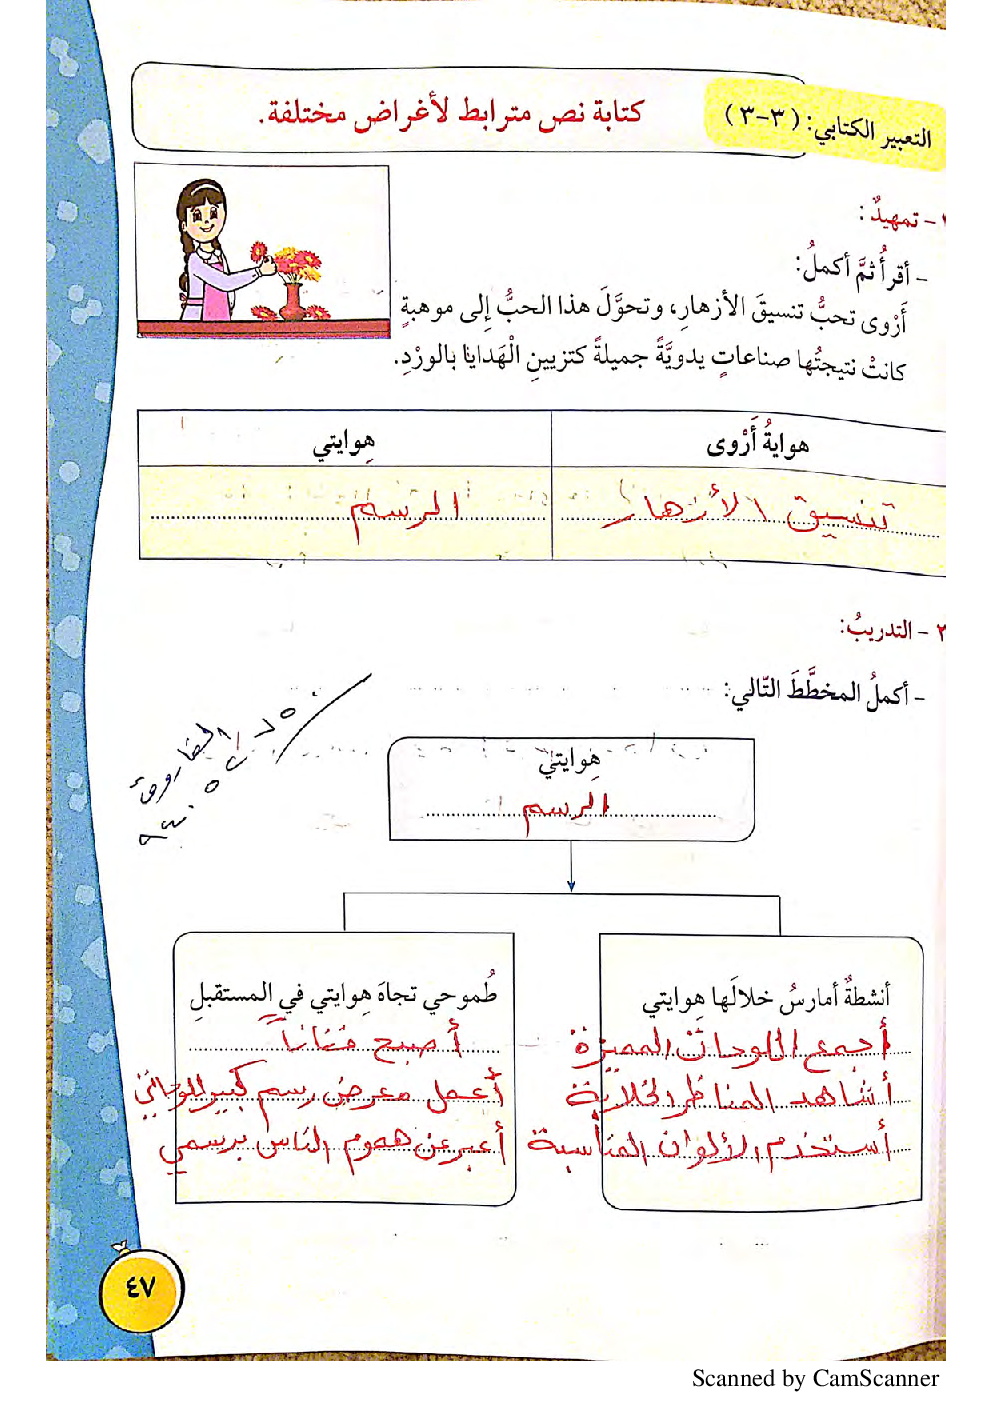 التعبير الكتابي: (٣-٣)
كتابة نص مترابط لأغراض مختلفة.
١- تمهيدٌ:
- أقرأُ ثمَّ أكملُ:
أَرْوى تحبُّ تنسيقَ الأزهارِ، وتحوَّلَ هذا الحبُّ إلى موهبةٍ
كانتْ نتيجتُها صناعاتٍ يدويَّةً جميلةً كتزيينِ الْهَدايا بالورْدِ.
هوايةُ أَرْوى
هِوايتي
تنسيق الأزهار
الرسم
٢ - التدريبُ:
- أكملُ المخطَّطَ التّالي:
هِوايتي
الرسم
أنشطةٌ أمارسُ خلالَها هِوايتي
أجمع اللوحات المميزة
أشاهد المناظر الخلابة
أستخدم الألوان المناسبة
طُموحي تجاهَ هِوايتي في المستقبلِ
أصبح فناناً
أعمل معرض رسم كبير للوحاتي
أعبر عن هموم الناس برسمي
٤٧
Scanned by CamScanner